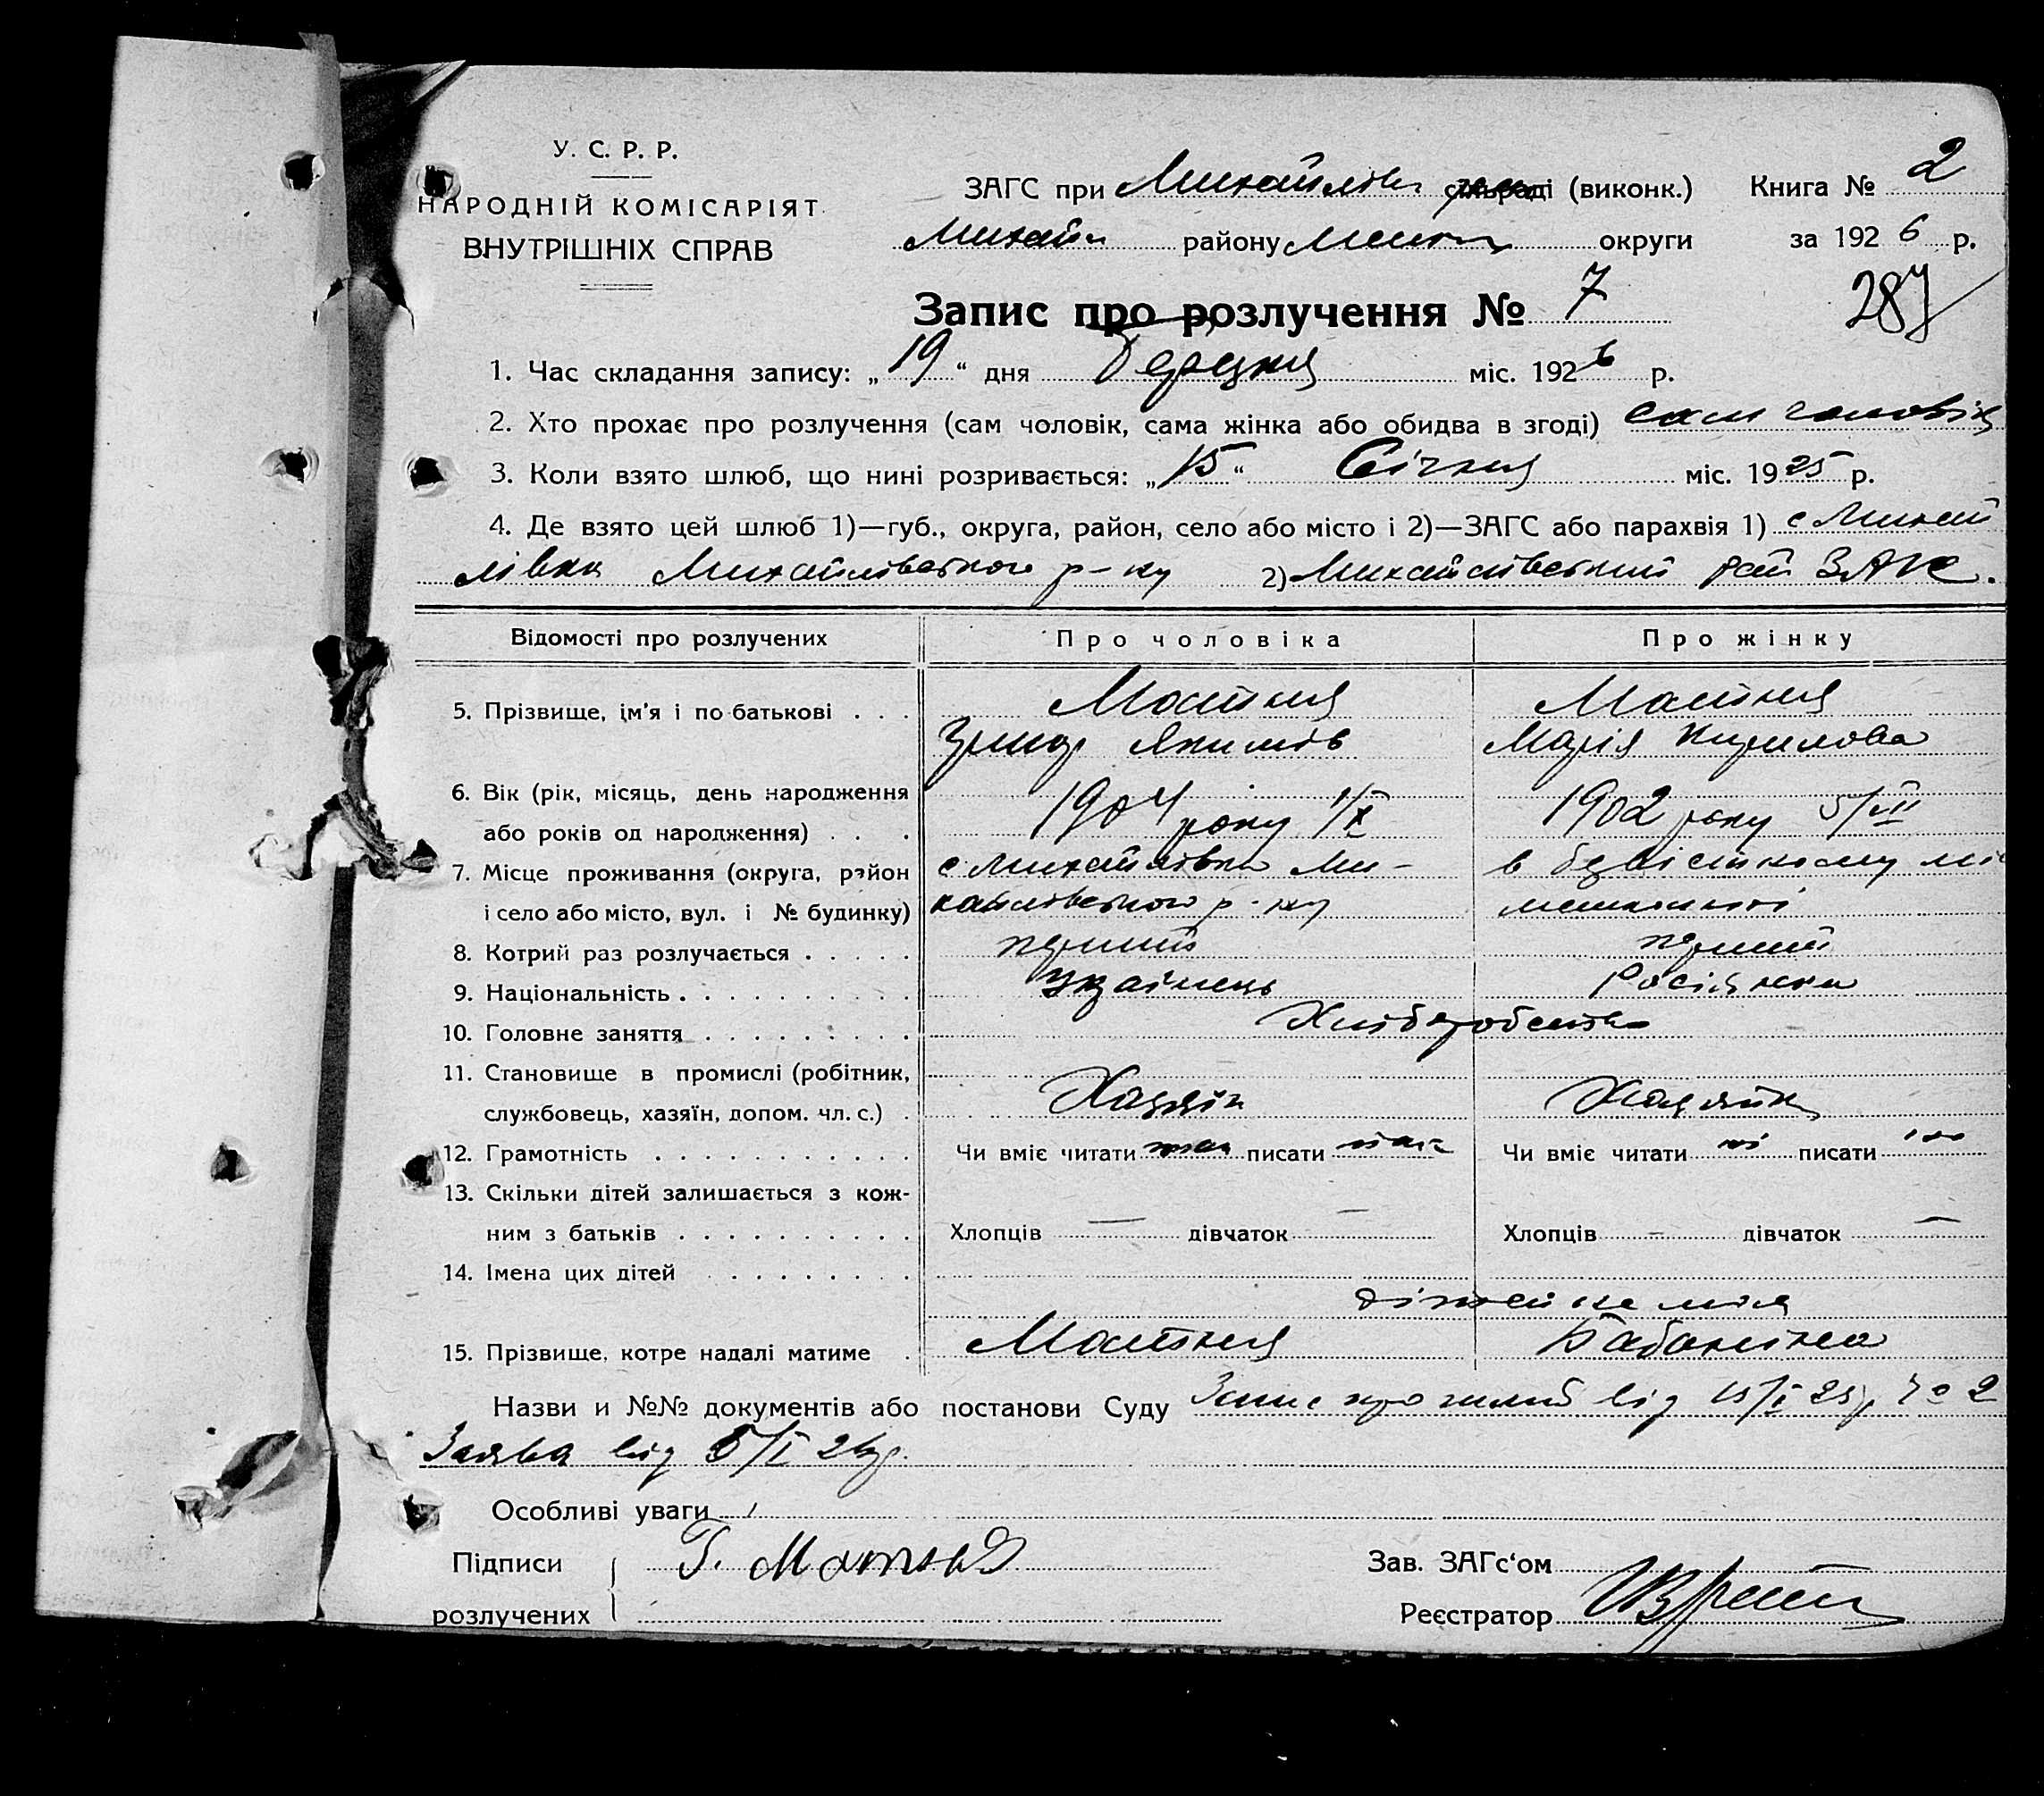 У. С. Р. Р.
НАРОДНІЙ КОМІСАРІЯТ
ВНУТРІШНІХ СПРАВ
ЗАГС при Михайлів. сільраді (виконк.) Книга № 2
Михайл району округи за 1926 р.
Запис про розлучення № 7
287
1. Час складання запису: „19“ дня міс. 1926 р.
2. Хто прохає про розлучення (сам чоловік, сама жінка або обидва в згоді) сам чоловік
3. Коли взято шлюб, що нині розривається: „15“ Січня міс. 1925 р.
4. Де взято цей шлюб 1)—губ., округа, район, село або місто і 2)—ЗАГС або парахвія 1) с Михай
лівка Михайлівського р-ну 2) Михайлівський рай ЗАГС.
Відомості про розлучених Про чоловіка Про жінку
5. Прізвище, ім'я і по-батькові . . . Мотня Мотня
Григор Якимів Марія Кирилова
6. Вік (рік, місяць, день народження
або років од народження) . . . 1904 року 1/X 1902 року
7. Місце проживання (округа, район с Михайлівка Ми-
і село або місто, вул. і № будинку) хайлівського р-ну
8. Котрий раз розлучається . . . . . перший перший
9. Національність . . . . . . . . . . Українець Росіянка
10. Головне заняття . . . . . . . . . Хліборобство
11. Становище в промислі (робітник,
службовець, хазяїн, допом. чл. с.) . Хазяїн Хазяйка
12. Грамотність . . . . . . . . . . . Чи вміє читати писати Чи вміє читати ні писати
13. Скільки дітей залишається з кож-
ним з батьків . . . . . . . . . . Хлопців — дівчаток — Хлопців — дівчаток —
14. Імена цих дітей . . . . . . . .
дітей не має
15. Прізвище, котре надалі матиме . Мотня Бабаніна
Назви и №№ документів або постанови Суду Запис про шлюб від 15/I 25 р. № 2
Заява від 26 р.
Особливі уваги
Підписи Г. Мотня Зав. ЗАГс'ом
розлучених Реєстратор